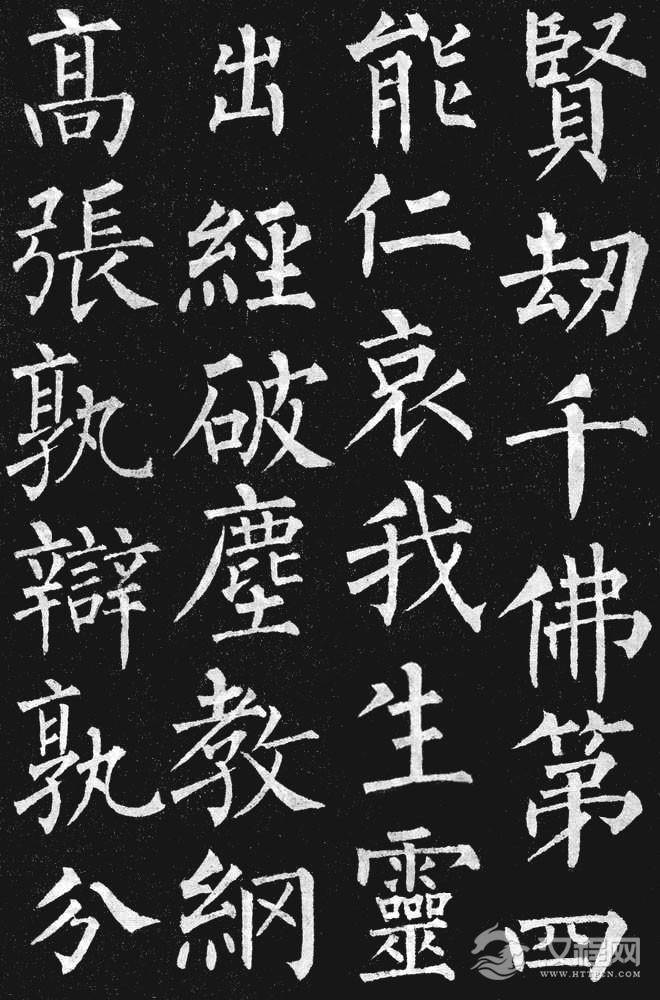 賢劫千佛第四
能仁哀我生靈
出經破塵教綱
高張孰辯孰分
文程网
WWW.HTTPCN.COM